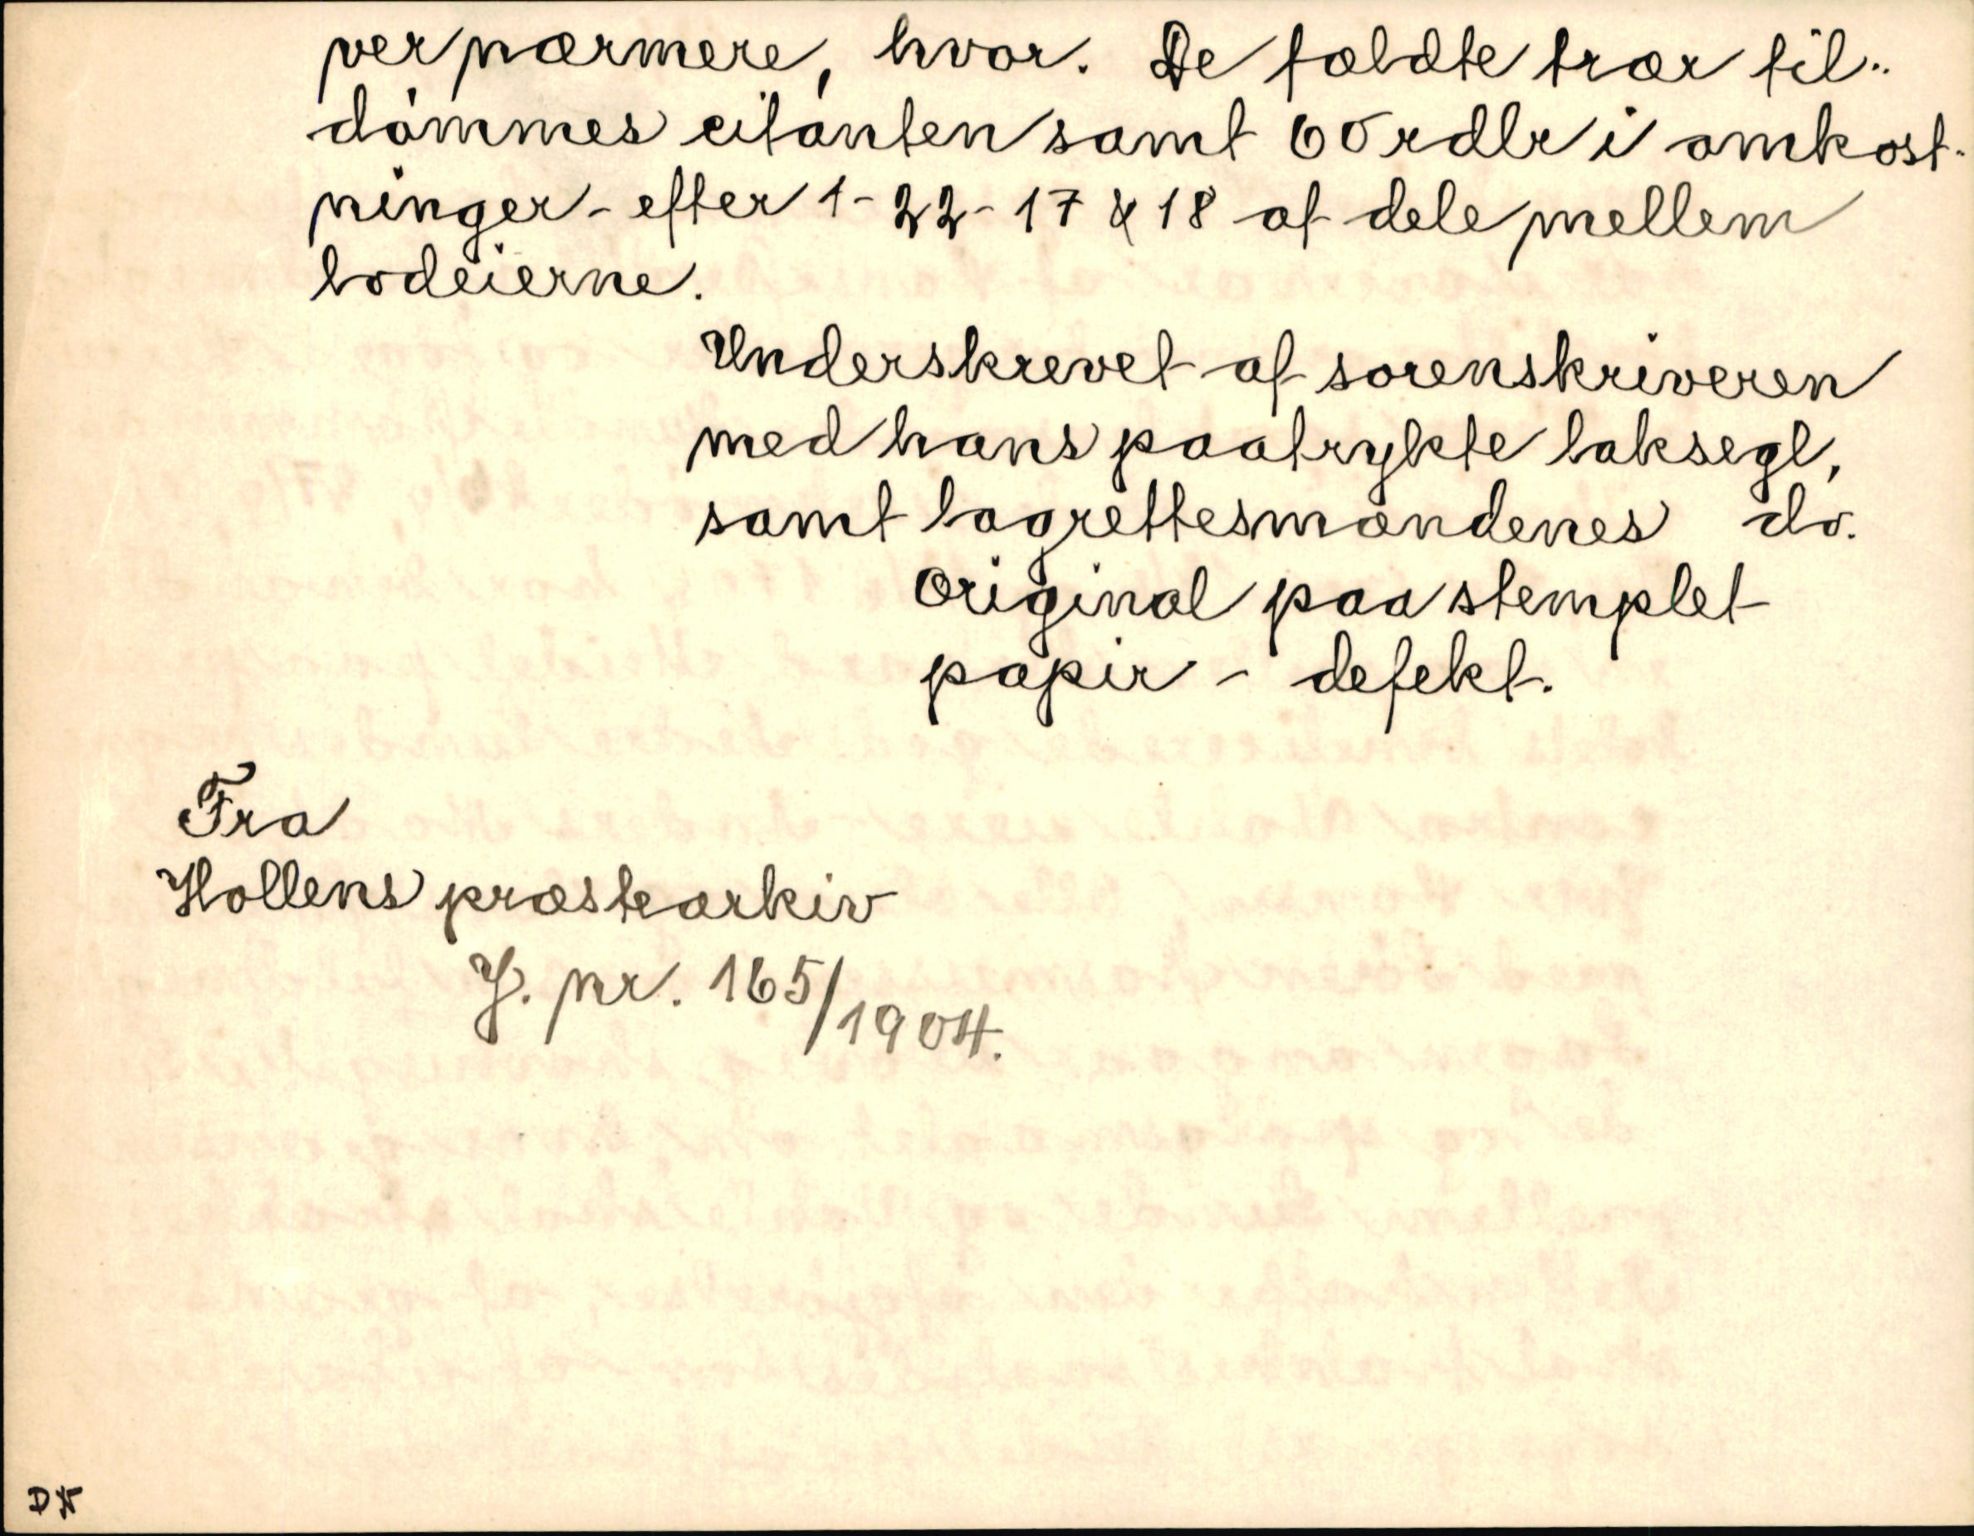 ver nærmere, hvor. De fældte trær til-
dømmes citanten samt 60 rdlr i omkost-
ninger - efter 1-22-17 & 18 at dele mellem
lodeierne.
Underskrevet af sorenskriveren
med hans paatrykte laksegl,
samt lagrettesmændenes do.
Original paa stemplet
papir - defekt.
Fra
Hollens præstearkiv
J. nr. 165/1904.